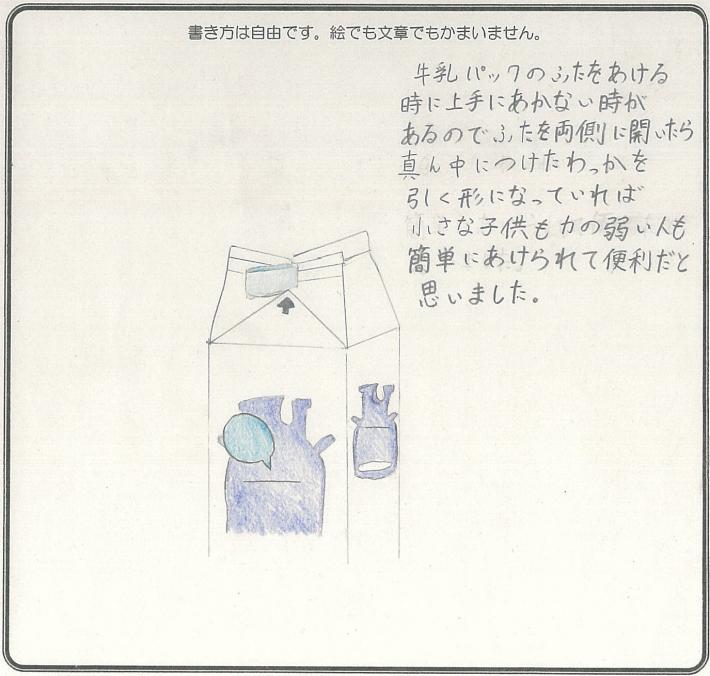 書き方は自由です。絵でも文章でもかまいません。
牛乳パックのふたをあける
時に上手にあかない時が
あるのでふたを両側に開いたら
真ん中につけたわっかを
引く形になっていれば
小さな子供も力の弱い人も
簡単にあけられて便利だと
思いました。